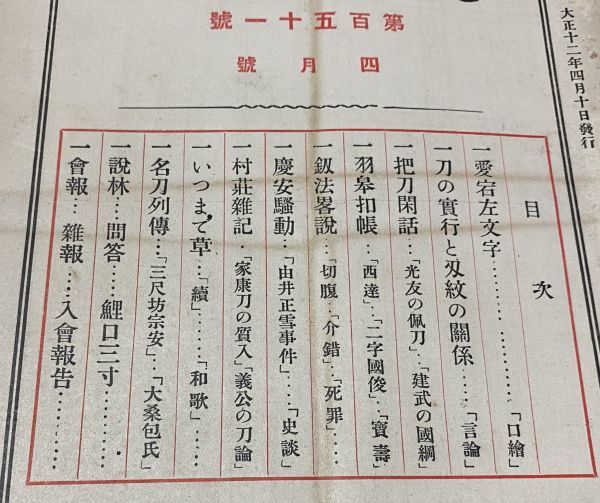 大正十二年四月十日發行
第百五十一號
四月號
目次
一愛宕左文字‥‥‥‥‥‥「口繪」
一刀の實行と刄紋の關係‥‥「言論」
一把刀閑話‥「光友の佩刀」「建武の國綱」
一羽皋扣帳‥「西蓮」「二字國俊」「寶壽」
一釼法畧說‥「切腹‥介錯‥「死罪」‥‥
一慶安騷動‥「由井正雪事件」‥‥「史談」
一村莊雜記‥「家康刀の質入」「義公の刀論」
一いつまで草‥「續」‥‥‥「和歌」‥‥‥
一名刀列傳‥「三尺坊宗安」‥「大桑包氏」
一說林‥‥問答‥‥鯉口三寸‥‥‥‥
一會報‥雜報‥‥入會報告‥‥‥‥